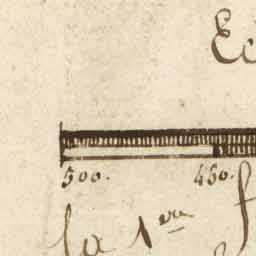 Ec
500. 450.
la 1re f